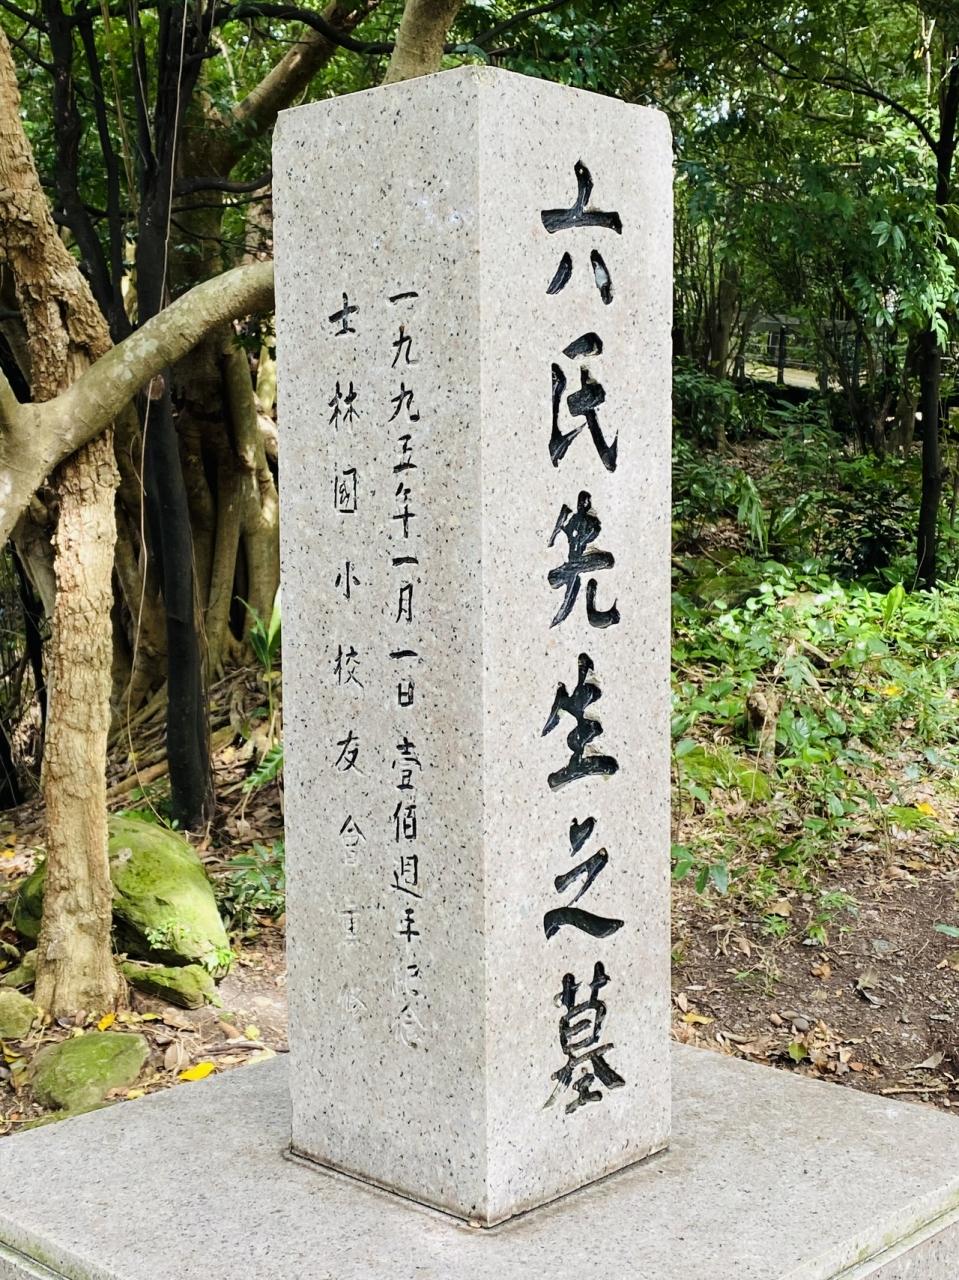 六氏先生之墓
一九九五年一月一日 壹佰週年紀念
士林國小校友會重修